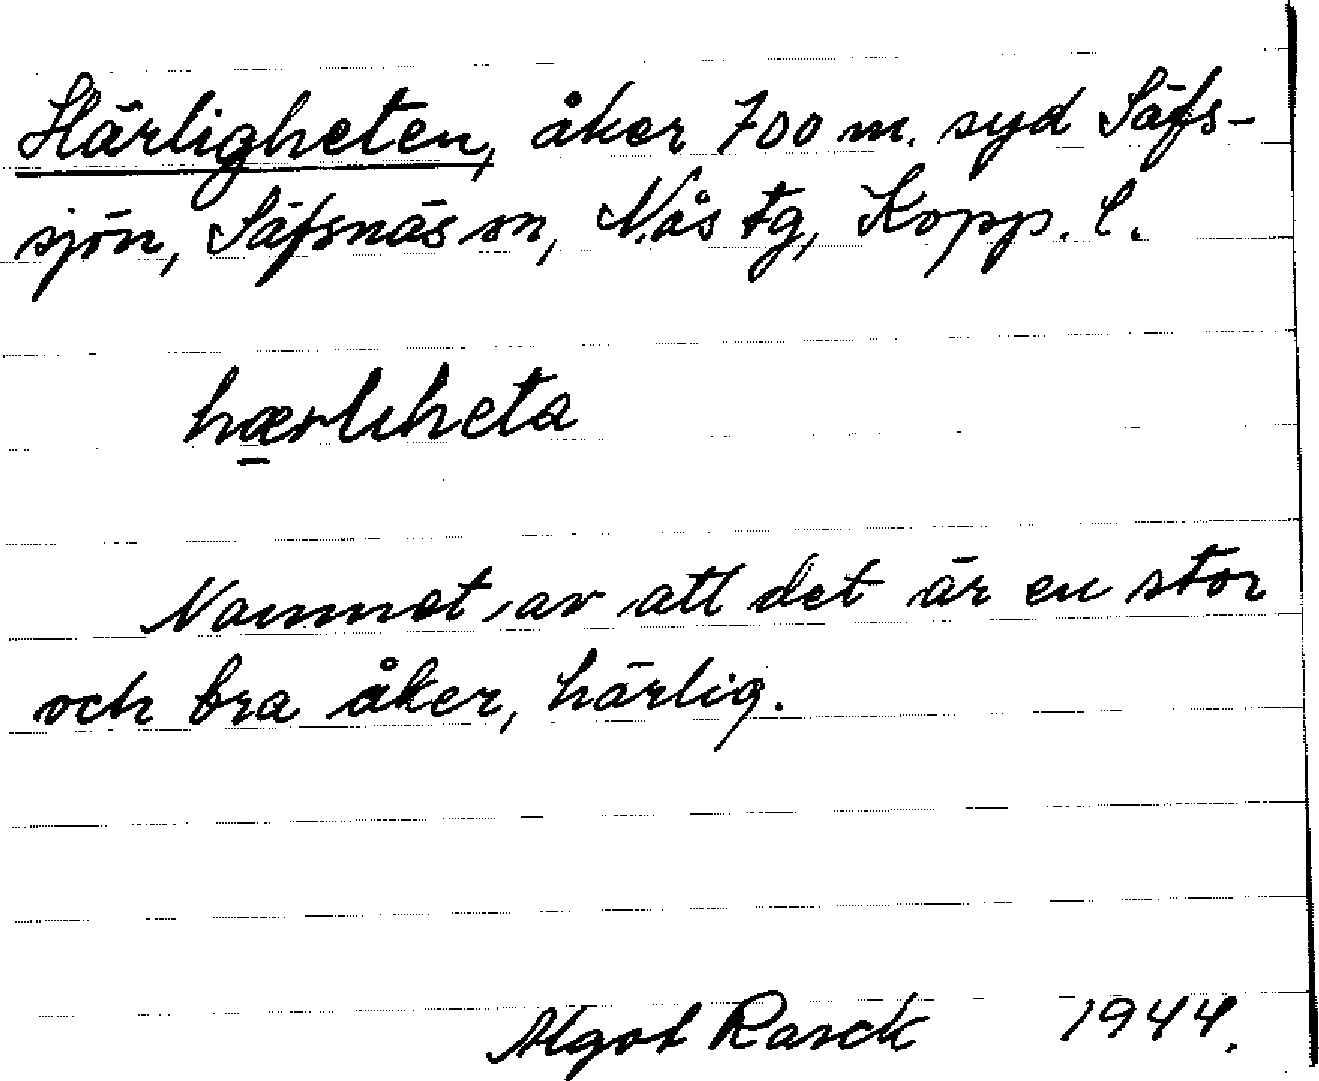 Härligheten, åker 700 m. syd Säfs-
sjön, Säfsnäs sn, Nås tg, Kopp. l.
hærliheta
Namnet av att det är en stor
och bra åker, härlig.
Algot Rasck 1944.